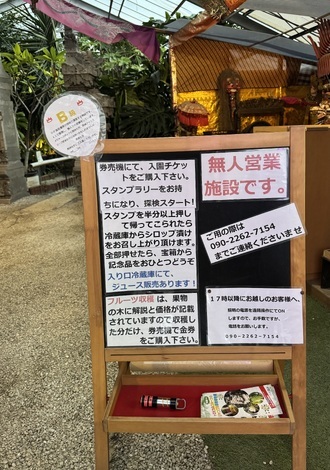 B品
券売機にて、入園チケッ
トをご購入下さい。
スタンプラリーをお持
ちになり、探検スタート!
スタンプを半分以上押し
て帰ってこられたら
冷蔵庫からシロップ漬け
をお召し上がり頂けます。
全部押せたら、宝箱から
記念品をおひとつどうぞ
入り口冷蔵庫にて、
ジュース販売あります!
フルーツ収穫は、果物
の木に解説と価格が記載
されていますので収穫し
た分だけ、券売機で金券
をご購入下さい。
無人営業
施設です。
ご用の際は
090-2262-7154
までご連絡くださいませ
17時以降にお越しのお客様へ、
照明の電源を遠隔操作にてON
しますので、お手数ですが、
電話をお願いします。
090-2262-7154